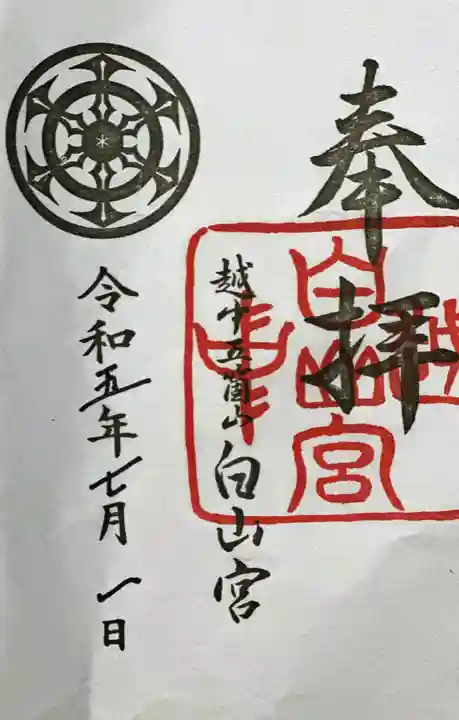 奉拝
越中五箇山白山宮
令和五年七月一日
白山宮